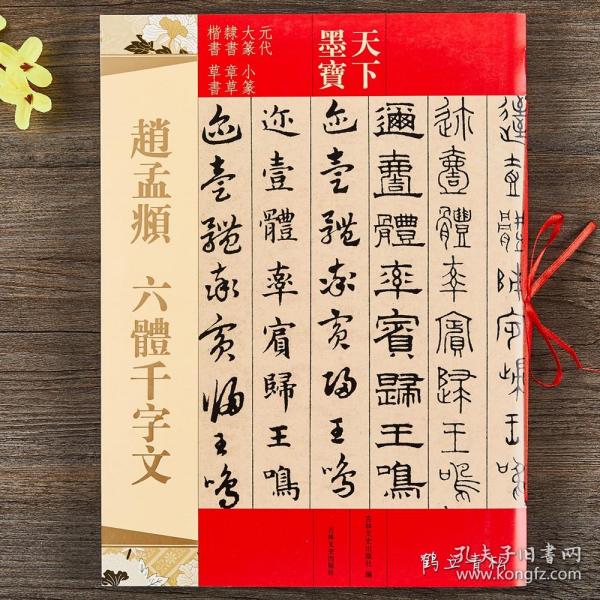 天下
墨寶
元代
大篆 小篆
隸書 章草
楷書 草書
趙孟頫 六體千字文
邇壹體率賓歸王鳴
邇壹體率賓歸王鳴
邇壹體率賓歸王鳴
迩壹體率賓歸王鳴
迩壹體率賓歸王鳴
吉林文史出版社 編
吉林文史出版社
孔夫子旧书网
www.kongfz.com